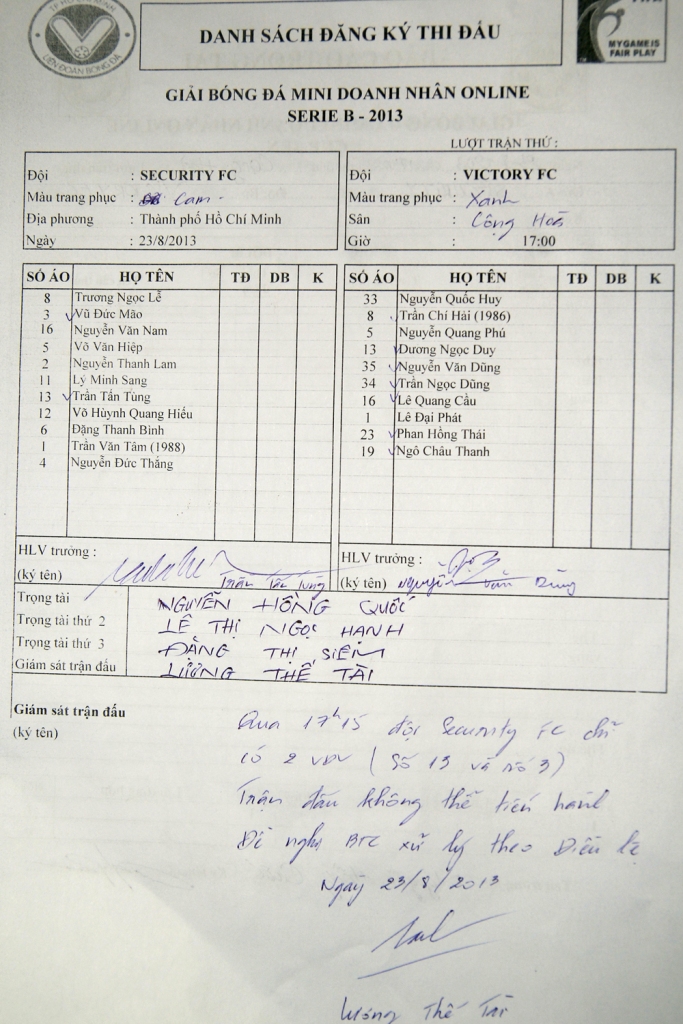 LIÊN ĐOÀN BÓNG ĐÁ
DANH SÁCH ĐĂNG KÝ THI ĐẤU
MY GAME IS
FAIR PLAY
GIẢI BÓNG ĐÁ MINI DOANH NHÂN ONLINE
SERIE B - 2013
LƯỢT TRẬN THỨ :
Đội : SECURITY FC
Màu trang phục : Cam
Địa phương : Thành phố Hồ Chí Minh
Ngày : 23/8/2013
Đội : VICTORY FC
Màu trang phục : Xanh
Sân : Cộng Hoà
Giờ : 17:00
SỐ ÁO HỌ TÊN TĐ DB K
8 Trương Ngọc Lễ
3 Vũ Đức Mão
16 Nguyễn Văn Nam
5 Võ Văn Hiệp
2 Nguyễn Thanh Lam
11 Lý Minh Sang
13 Trần Tấn Tùng
12 Võ Hùynh Quang Hiếu
6 Đặng Thanh Bình
1 Trần Văn Tâm (1988)
4 Nguyễn Đức Thắng
SỐ ÁO HỌ TÊN TĐ DB K
33 Nguyễn Quốc Huy
8 Trần Chí Hải (1986)
5 Nguyễn Quang Phú
13 Dương Ngọc Duy
35 Nguyễn Văn Dũng
34 Trần Ngọc Dũng
16 Lê Quang Cầu
1 Lê Đại Phát
23 Phan Hồng Thái
19 Ngô Châu Thanh
HLV trưởng :
(ký tên) Trần Tấn Tùng
HLV trưởng :
(ký tên) Nguyễn Văn Dũng
Trọng tài NGUYỄN HỒNG QUỐC
Trọng tài thứ 2 LÊ THỊ NGỌC HẠNH
Trọng tài thứ 3 ĐẶNG THỊ SIÊM
Giám sát trận đấu LƯƠNG THẾ TÀI
Giám sát trận đấu
(ký tên)
Qua 17h15 đội Security FC chỉ
có 2 VĐV (Số 13 và số 3)
Trận đấu không thể tiến hành
Đề nghị BTC xử lý theo Điều lệ
Ngày 23/8/2013
Lương Thế Tài